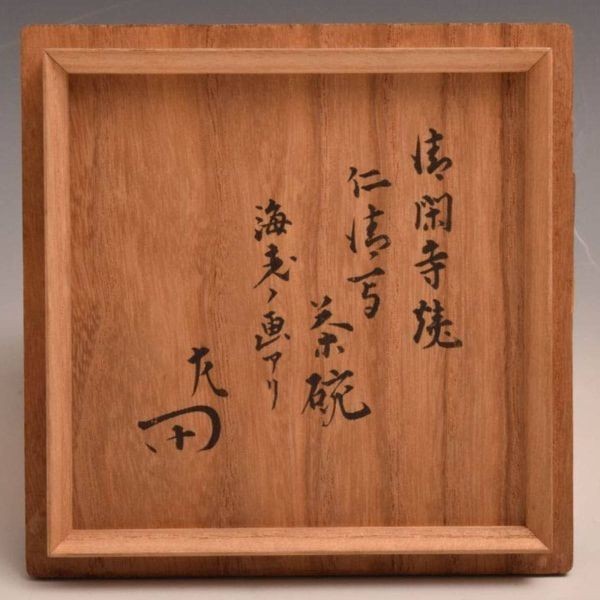 清閑寺焼
仁清写
茶碗
海老ノ画アリ
左